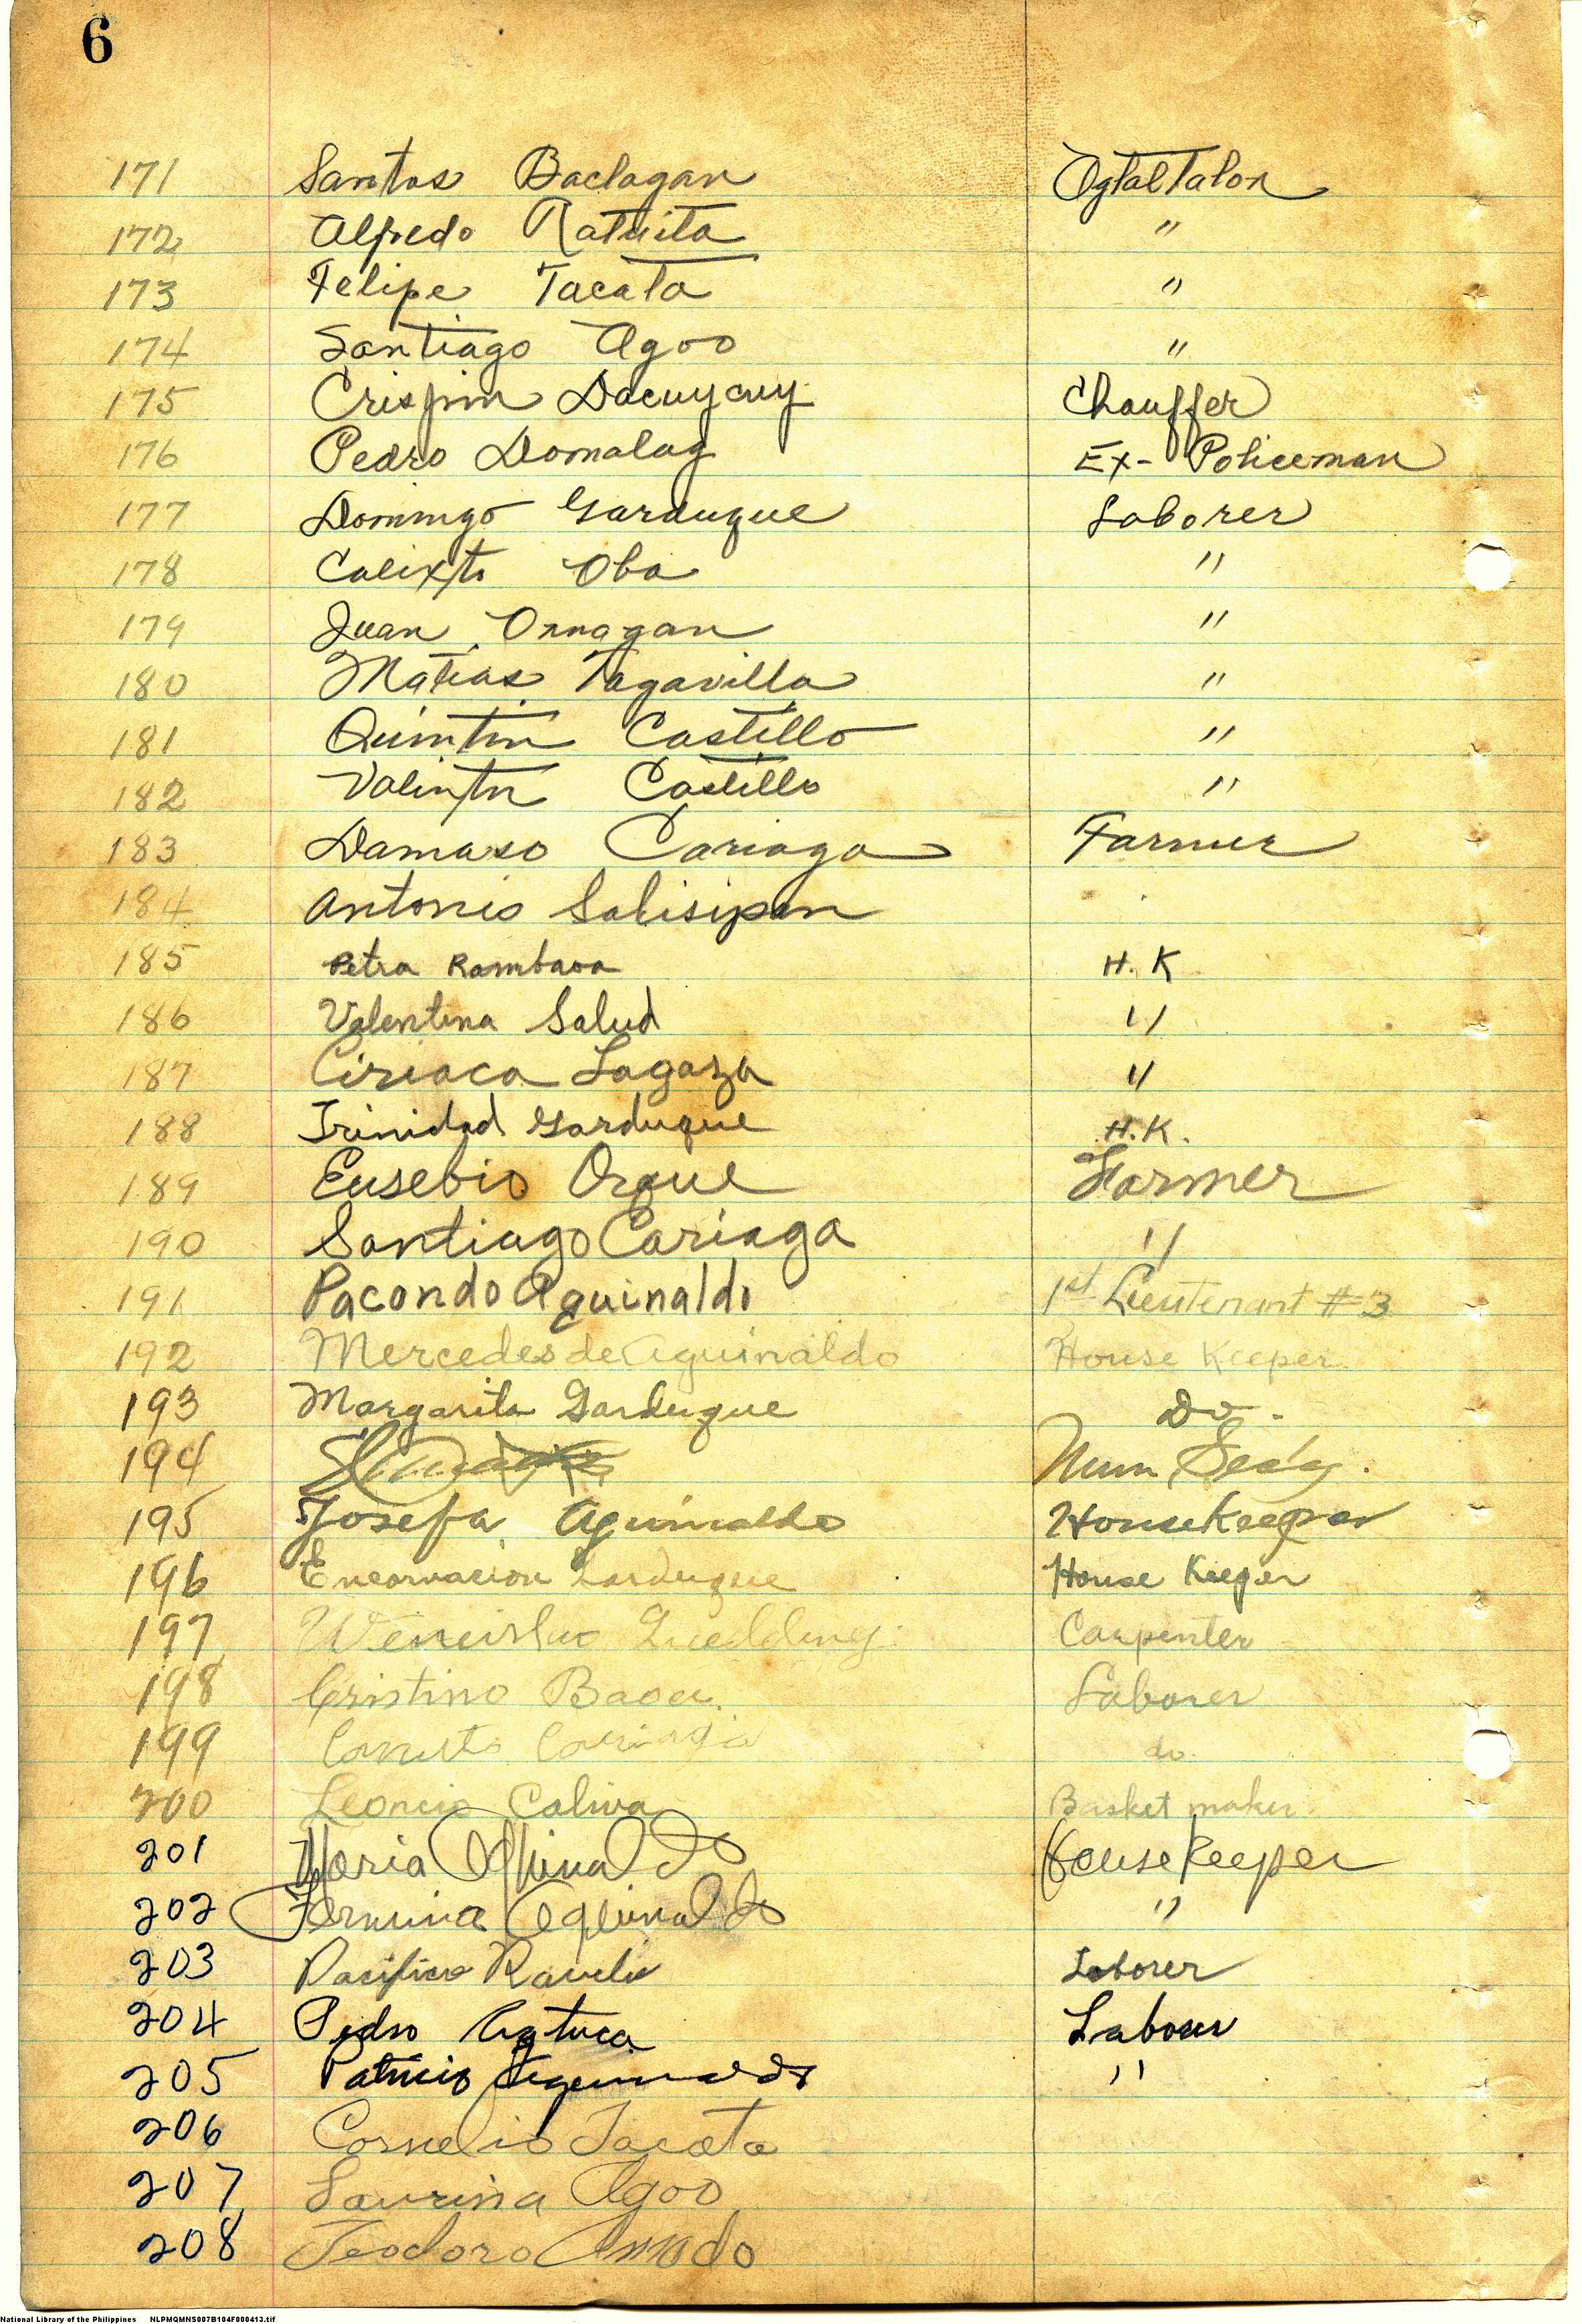 6
171 Santos Baclagan Ogtaltalon
172 Alfredo Ratuita "
173 Felipe Tacata "
174 Santiago Agoo "
175 Crispin Dacuycuy Chauffer
176 Pedro Domalag Ex- Policeman
177 Domingo Garduque Laborer
178 Calixto Oba "
179 Juan Ornagan "
180 Matias Tagavilla "
181 Quintin Castillo "
182 Valintin Castillo "
183 Damaso Cariaga Farmer
184 Antonio Salisipan
185 Petra Rambaoa H. K
186 Valentina Salud "
187 Ciriaca Lagaza "
188 Trinidad Garduque H.K.
189 Eusebio Orque Farmer
190 Santiago Cariaga "
191 Pacondo Aguinaldo 1st Lieutenant #3
192 Mercedes de Aguinaldo House Keeper.
193 Margarita Garduque Do.
194
195 Josefa Aguinaldo HouseKeeper
196 Encarnacion Garduque House Keeper
197 Carpenter
198 Cristino Baoa. Laborer
199 Canuto Cariaga do.
200 Leoncio Caliva Basket maker.
201 Maria Aguinaldo House Keeper
202 Fermina Aguinaldo "
203 Pacifico Ravelo Laborer
204 Pedro Agtuca Laborer
205 Patricio Aguinaldo "
206 Cornelio Tacata
207 Laurina Agoo
208 Teodoro
National Library of the Philippines NLPMQMNS007B104F000413.tif